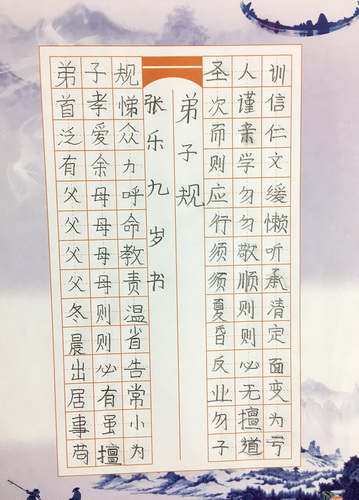 弟子规 圣人训
首孝悌 次谨信
泛爱众 而亲仁
有余力 则学文
父母呼 应勿缓
父母命 行勿懒
父母教 须敬听
父母责 须顺承
冬则温 夏则清
晨则省 昏则定
出必告 反必面
居有常 业无变
事虽小 勿擅为
苟擅为 子道亏
弟子规
张乐九岁书